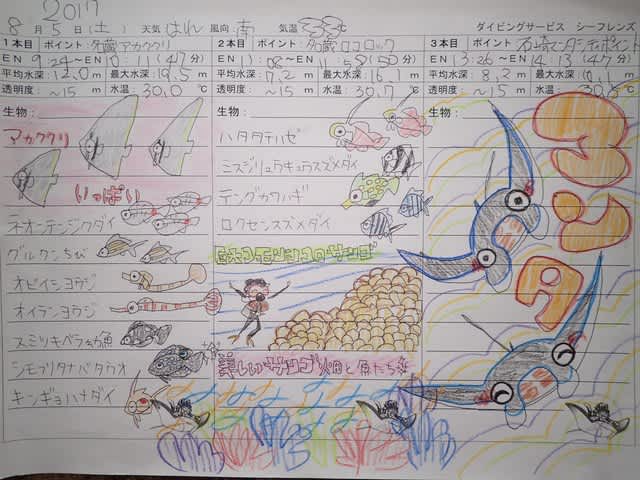 2017
8月5日(土) 天気 はれ 風向 南 気温 33℃ ダイビングサービス シーフレンズ
1本目 ポイント: 名蔵アカククリ
EN 9:24~EN 10:11(47)分
平均水深: 12.0m 最大水深: 19.5m
透明度: ~15m 水温: 30.0℃
生物:
アカククリ
いっぱい
ネオンテンジクダイ
グルクンちび
オビイシヨウジ
オイランヨウジ
スミツキベラ幼魚
シモフリタナバタウオ
キンギョハナダイ
2本目 ポイント: 名蔵ロコロック
EN 11:08~EN 11:58(50)分
平均水深: 7.2m 最大水深: 16.1m
透明度: ~15m 水温: 30.7℃
生物:
ハタタテハゼ
ミスジリュウキュウスズメダイ
テングカワハギ
ロクセンスズメダイ
美しいサンゴ畑と魚たち
3本目 ポイント: 石崎マンタシティポイント
EN 13:26~EN 14:13(47)分
平均水深: 8.2m 最大水深: m
透明度: ~15m 水温: ℃
生物:
マンタ